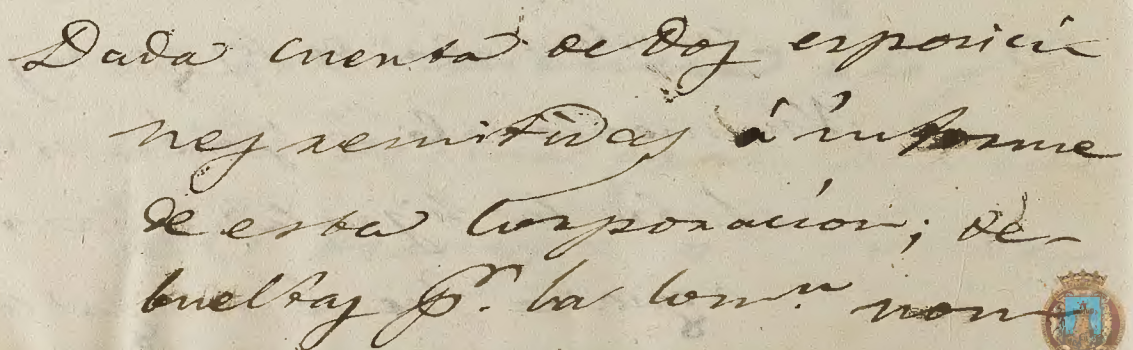 Dada cuenta de dos esposicio
nes remitidas á informe
de esta Corporacion; de-
bueltas pr. la Comn. nom